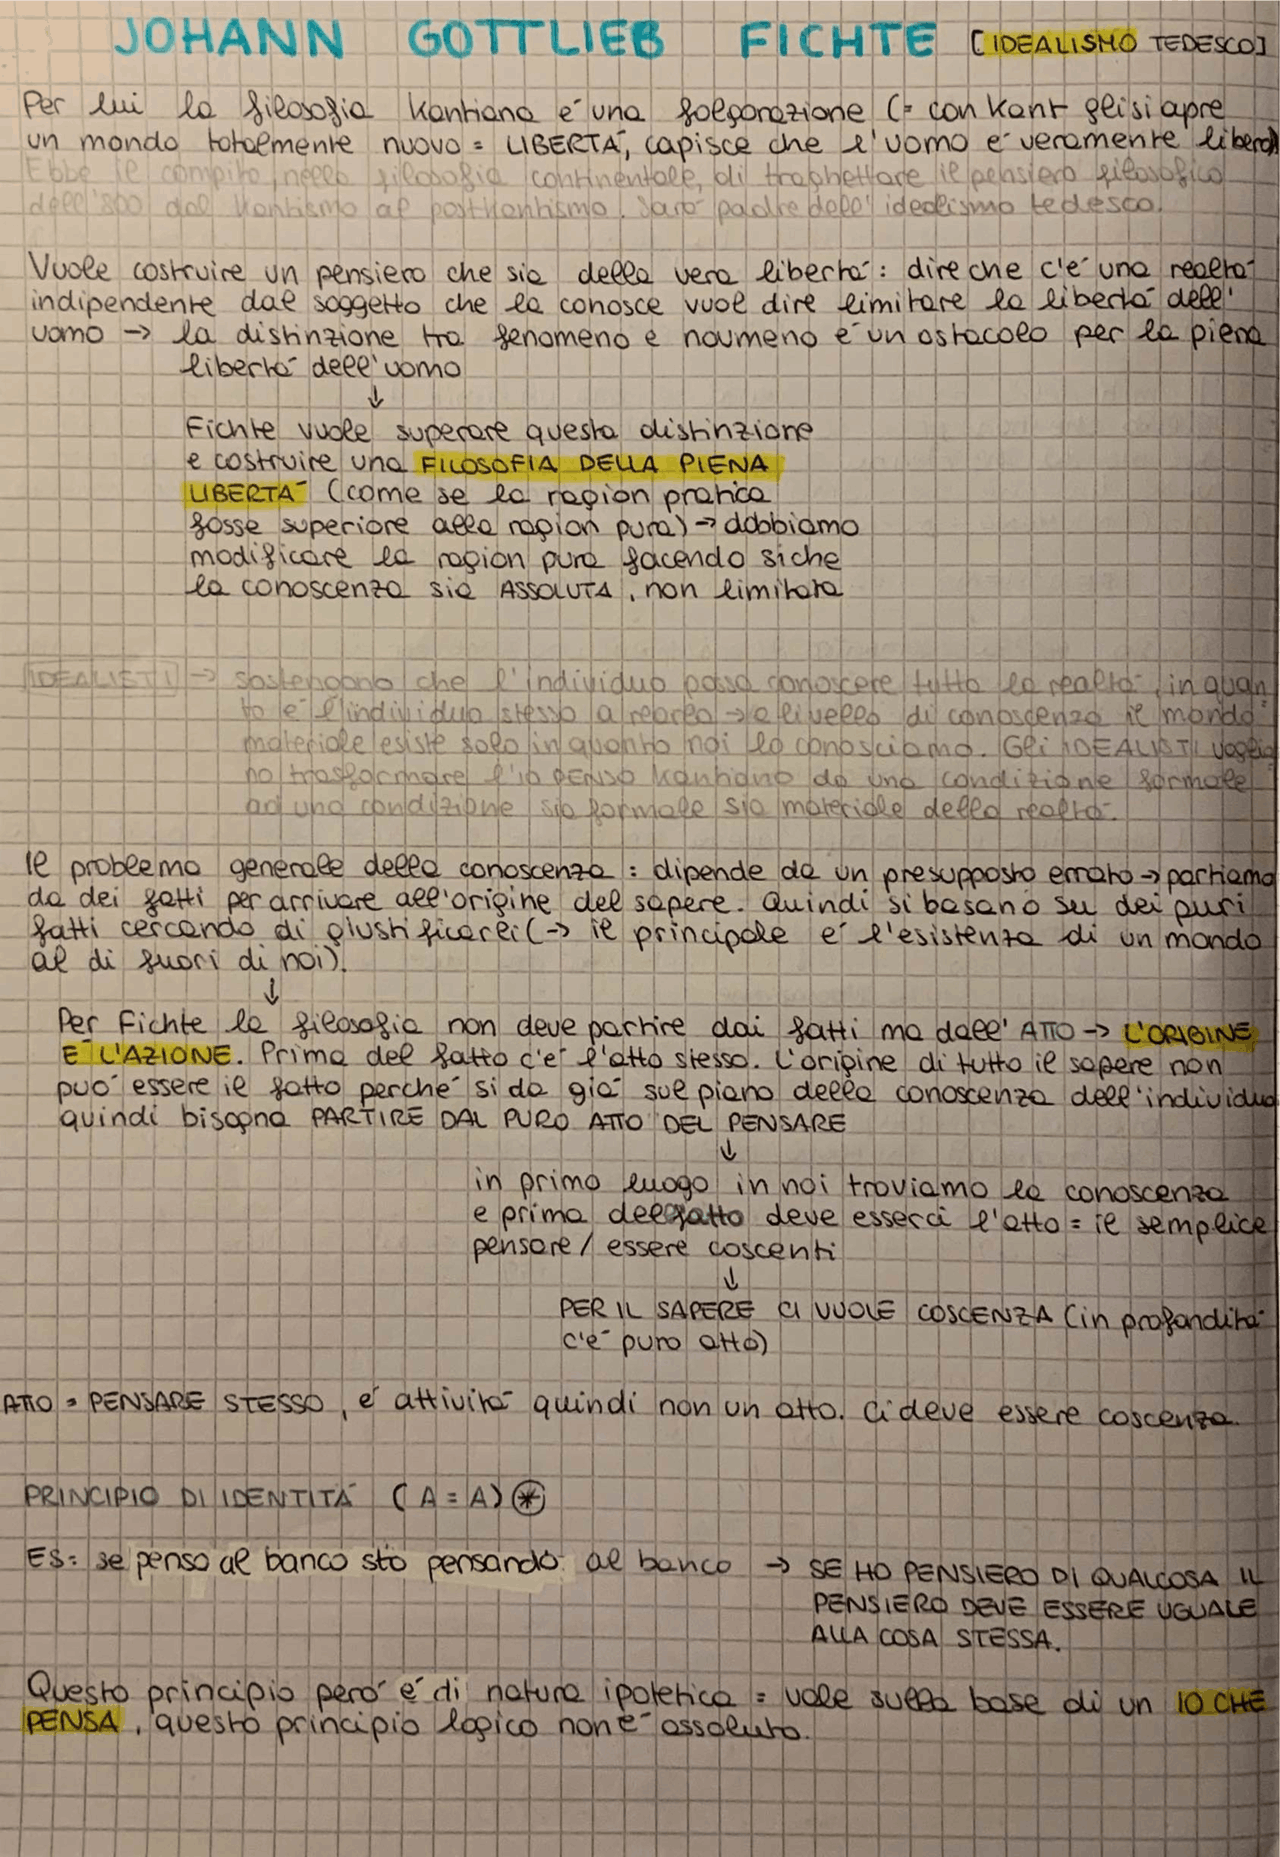 JOHANN GOTTLIEB FICHTE [IDEALISMO TEDESCO]
Per lui la filosofia Kantiana é una folgorazione (= con Kant gli si apre
un mondo totalmente nuovo = LIBERTÁ, capisce che l'uomo é veramente libero)
Ebbe il compito, nella filosofia continentale, di traghettare il pensiero filosofico
dell'800 dal Kantismo al postkantismo. Sará padre dell'idealismo tedesco.
Vuole costruire un pensiero che sia della vera libertá: dire che c'é una realtá
indipendente dal soggetto che la conosce vuol dire limitare la libertá dell'
uomo → la distinzione tra fenomeno e noumeno é un ostacolo per la piena
libertá dell'uomo
↓
Fichte vuole superare questa distinzione
e costruire una FILOSOFIA DELLA PIENA
LIBERTÁ (come se la ragion pratica
fosse superiore alla ragion pura) → dobbiamo
modificare la ragion pura facendo si che
la conoscenza sia ASSOLUTA, non limitata
IDEALISTI → sostengono che l'individuo possa conoscere tutta la realtá, in quan
to é l'individuo stesso a crearla → a livello di conoscenza il mondo
materiale esiste solo in quanto noi lo conosciamo. Gli IDEALISTI voglio
no trasformare l'IO PENSO Kantiano da una condizione formale
ad una condizione sia formale sia materiale della realtá.
Il problema generale della conoscenza: dipende da un presupposto errato → partiamo
da dei fatti per arrivare all'origine del sapere. Quindi si basano su dei puri
fatti cercando di giustificarli (→ il principale é l'esistenza di un mondo
al di fuori di noi).
↓
Per Fichte la filosofia non deve partire dai fatti ma dall'ATTO → L'ORIGINE
É L'AZIONE. Prima del fatto c'é l'atto stesso. L'origine di tutto il sapere non
puó essere il fatto perché si da giá sul piano della conoscenza dell'individuo
quindi bisogna PARTIRE DAL PURO ATTO DEL PENSARE
↓
in primo luogo in noi troviamo la conoscenza
e prima del fatto deve esserci l'atto = il semplice
pensare / essere coscenti
↓
PER IL SAPERE CI VUOLE COSCENZA (in profonditá
c'é puro atto)
ATTO = PENSARE STESSO, é attivitá quindi non un atto. Ci deve essere coscenza.
PRINCIPIO DI IDENTITÁ (A = A) *
ES: se penso al banco sto pensando al banco → SE HO PENSIERO DI QUALCOSA IL
PENSIERO DEVE ESSERE UGUALE
ALLA COSA STESSA.
Questo principio peró é di natura ipotetica = vale sulla base di un IO CHE
PENSA, questo principio logico non é assoluto.